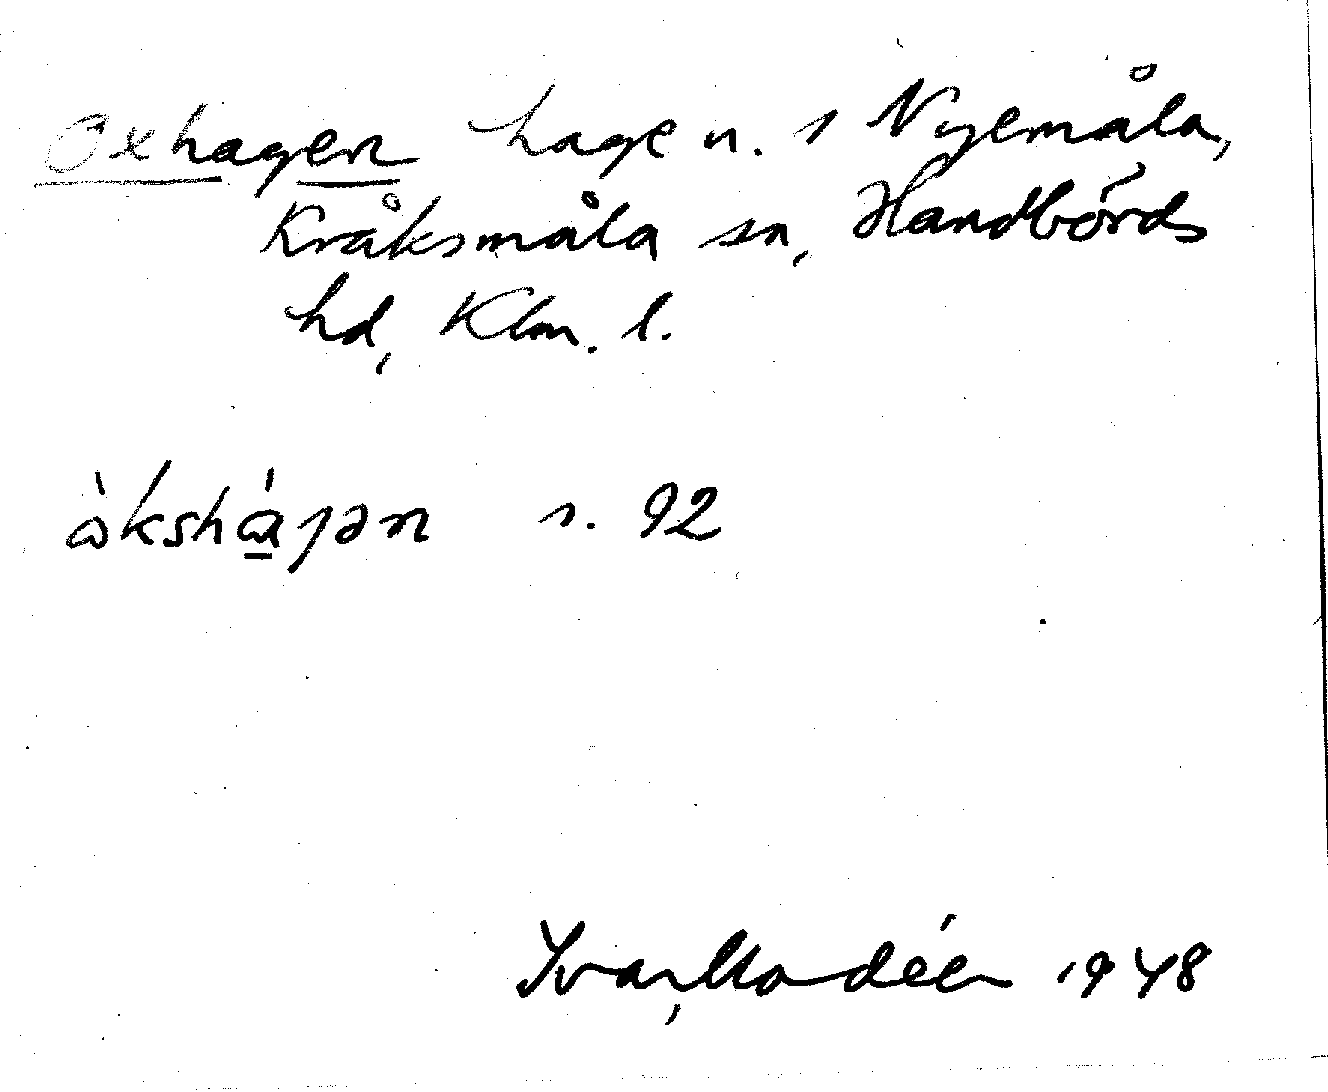 Oxhagen hage n. s Nyemåla,
Kråksmåla sn, Handbörds
hd, Klm. l.
s. 92
Ivar Modéer 1948